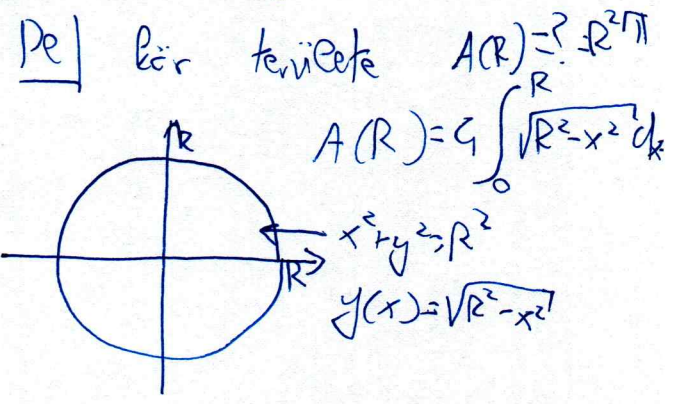 Pe| kör területe A(R)=? =R²π
A(R)=4∫₀ᴿ √(R²-x²) dx
R
x²+y²=R²
R
y(x)=√(R²-x²)